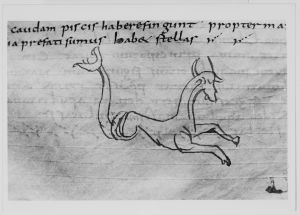 caudam piscis habere fingunt propter ma
ia prefati sumus habet stellas